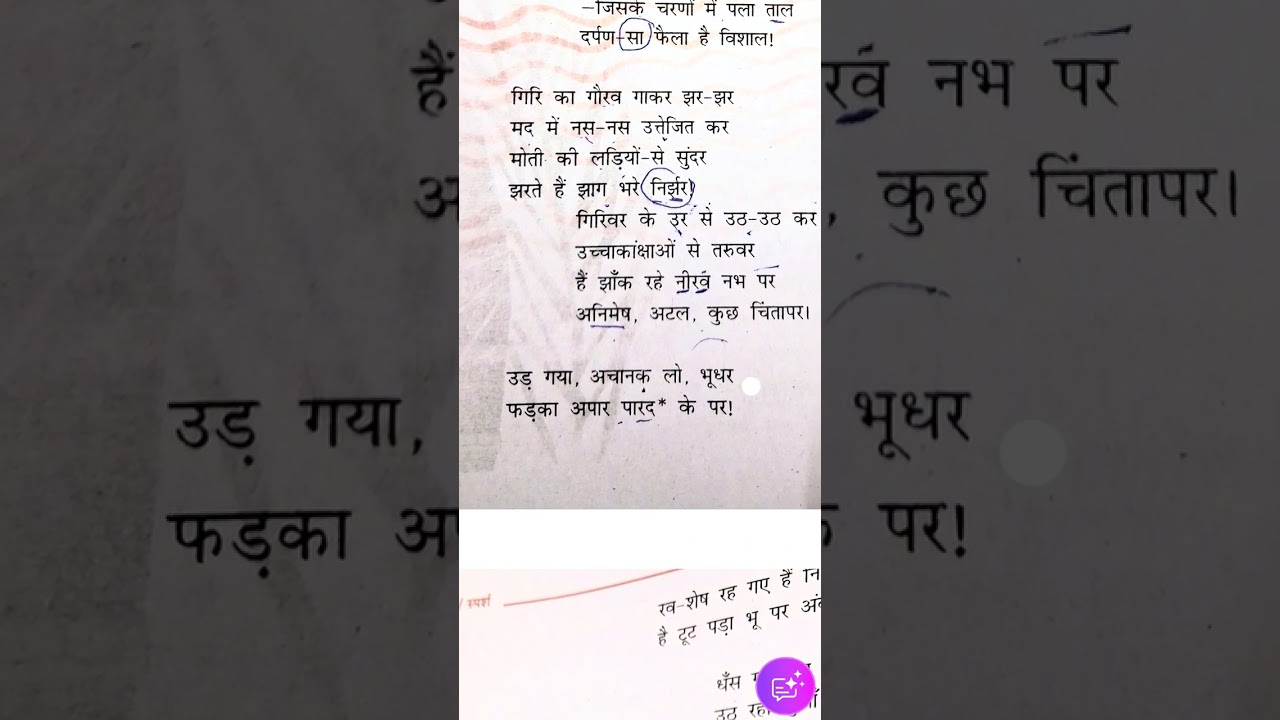 -जिसके चरणों में पला ताल
दर्पण-सा फैला है विशाल!
गिरि का गौरव गाकर झर-झर
मद में नस-नस उत्तेजित कर
मोती की लड़ियों-से सुंदर
झरते हैं झाग भरे निर्झर!
गिरिवर के उर से उठ-उठ कर
उच्चाकांक्षाओं से तरुवर
हैं झाँक रहे नीरव नभ पर
अनिमेष, अटल, कुछ चिंतापर।
उड़ गया, अचानक लो, भूधर
फड़का अपार पारद* के पर!
/ स्पर्श
रव-शेष रह गए हैं
है टूट पड़ा भू पर
धँस
उठ